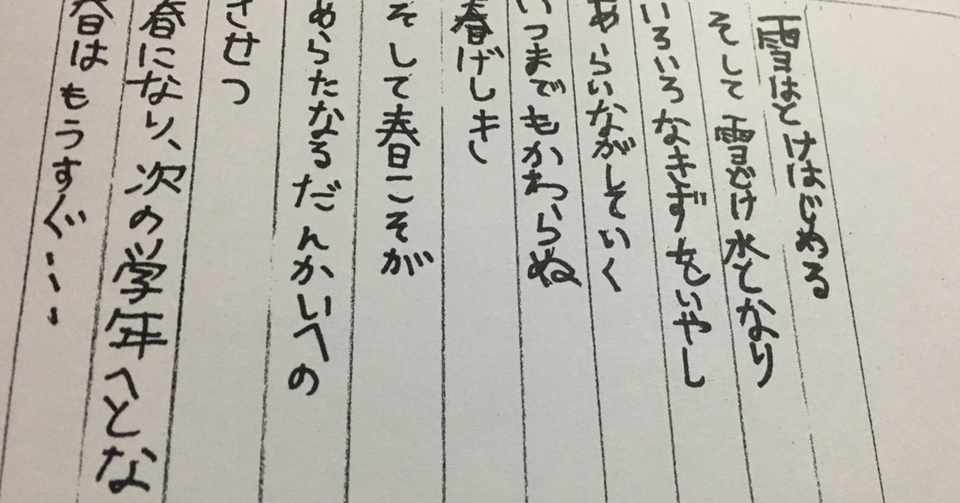 雪はとけはじめる
そして雪どけ水となり
いろいろなきずをいやし
あらいながしていく
いつまでもかわらぬ
春げしき
そして春こそが
あらたなるだんかいへの
きせつ
春になり、次の学年へとな
春はもうすぐ・・・